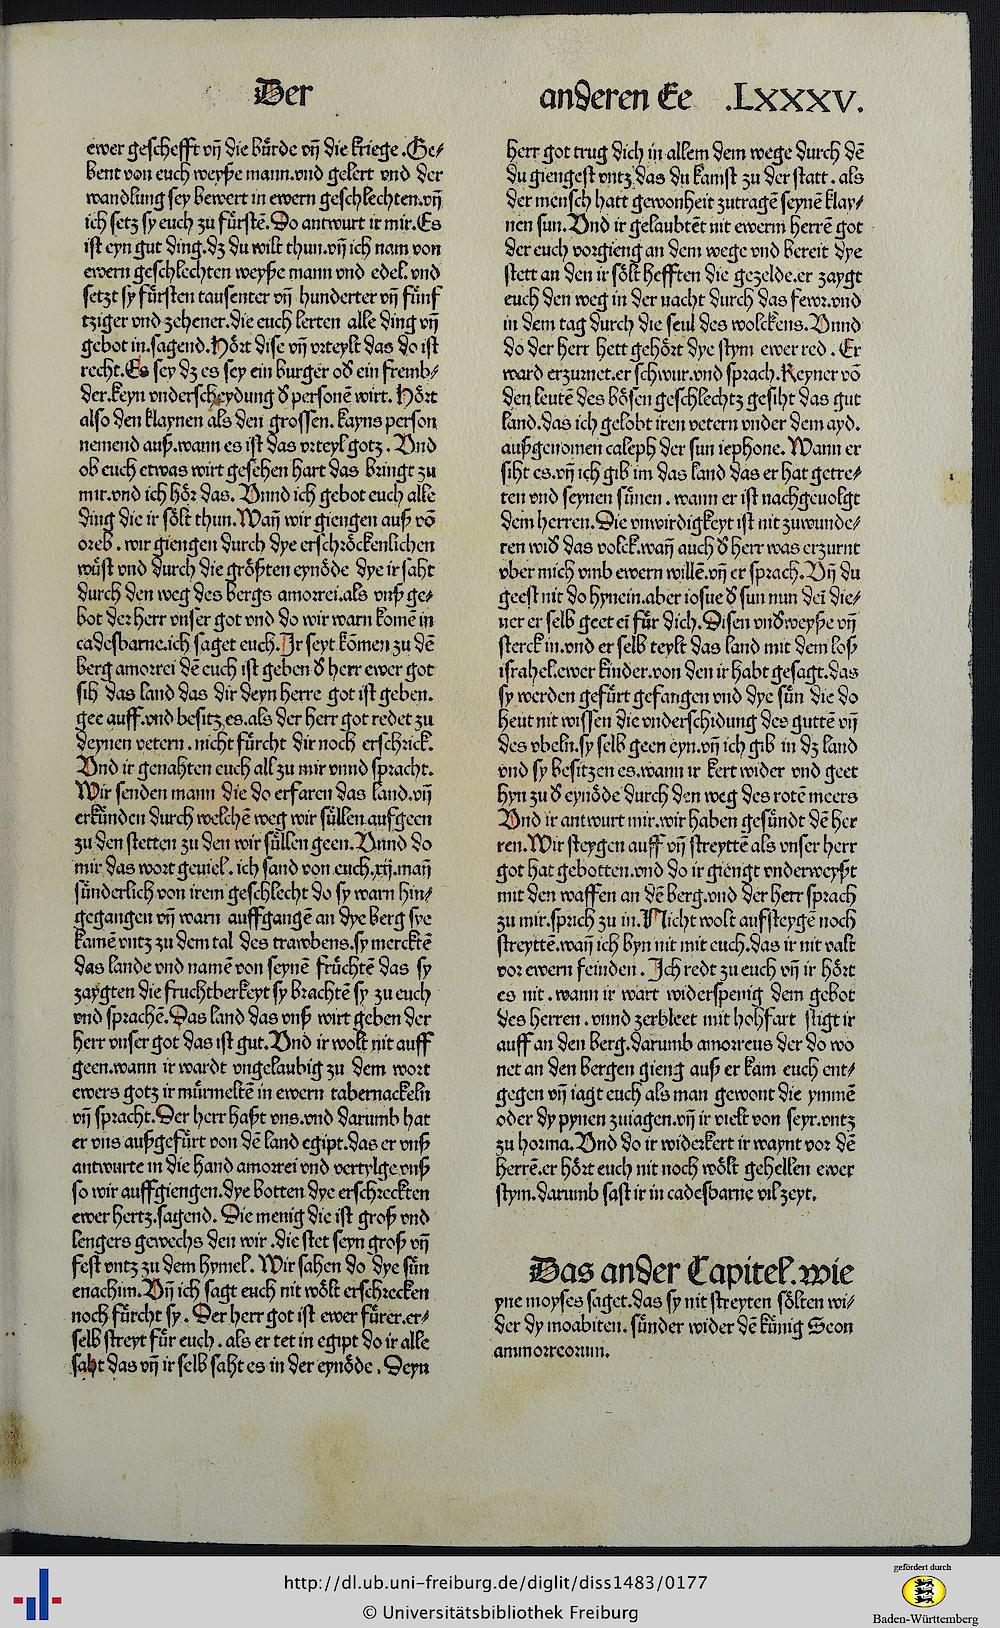 Der
anderen Ee .LXXXV.
ewer geschefft vñ die bürde vñ die kriege. Ge⸗
bent von euch weyße mann.vnd gelert vnd der
wandlung sey bewert in ewern geschlechten.vñ
ich setz sy euch zu fürstẽ. Do antwurt ir mir. Es
ist eyn gut ding.dz du wilt thun.vñ ich nam von
ewern geschlechten weyße mann vnd edel.vnd
setzt sy fürsten tausenter vñ hunderter vñ fünf
tziger vnd zehener.die euch lerten alle ding vñ
gebot in.sagend. Hört dise vñ vrteylt das do ist
recht. Es sey dz es sey ein burger oď ein fremb⸗
der.keyn vnderscheydung ď personẽ wirt. Hört
also den klaynen als den grossen. kayns person
nemend auß.wann es ist das vrteyl gotz. Vnd
ob euch etwas wirt gesehen hart das bringt zu
mir.vnd ich hör das. Vnnd ich gebot euch alle
ding die ir sölt thun. Wañ wir giengen auß võ
oreb. wir giengen durch dye erschröckenlichen
wüst vnd durch die größten eynöde dye ir saht
durch den weg des bergs amorrei.als vnß ge⸗
bot der herr vnser got vnd do wir warn komẽ in
cadesbarne.ich saget euch. Ir seyt kõmen zu dẽ
berg amorrei dẽ euch ist geben ď herr ewer got
sih das land das dir deyn herre got ist geben.
gee auff.vnd besitz es.als der herr got redet zu
deynen vetern. nicht fürcht dir noch erschrick.
Vnd ir genahten euch all zu mir vnnd spracht.
Wir senden mann die do erfaren das land.vñ
erkünden durch welchẽ weg wir süllen aufgeen
zu den stetten zu den wir süllen geen. Vnnd do
mir das wort geuiel. ich sand von euch.xij.mañ
sünderlich von irem geschlecht do sy warn hin⸗
gegangen vñ warn auffgangẽ an dye berg sye
kamẽ vntz zu dem tal des trawbens.sy mercktẽ
das lande vnd namẽ von seynẽ früchtẽ das sy
zaygten die fruchtberkeyt sy brachtẽ sy zu euch
vnd sprachẽ. Das land das vnß wirt geben der
herr vnser got das ist gut. Vnd ir wolt nit auff
geen.wann ir wardt vngelaubig zu dem wort
ewers gotz ir mürmeltẽ in ewern tabernackeln
vñ spracht. Der herr haßt vns.vnd darumb hat
er vns außgefürt von dẽ land egipt.das er vnß
antwurte in die hand amorrei vnd vertylge vnß
so wir auffgiengen.dye botten dye erschreckten
ewer hertz.sagend. Die menig die ist groß vnd
lengers gewechs den wir .die stet seyn groß vñ
fest vntz zu dem hymel. Wir sahen do dye sün
enachim. Vñ ich sagt euch nit wölt erschrecken
noch fürcht sy. Der herr got ist ewer fürer.er⸗
selb streyt für euch. als er tet in egipt do ir alle
saht das vñ ir selb saht es in der eynöde. Deyn
herr got trug dich in allem dem wege durch dẽ
du giengest vntz das du kamst zu der statt. als
der mensch hatt gewonheit zutragẽ seynẽ klay⸗
nen sun. Vnd ir gelaubtẽt nit ewerm herrẽ got
der euch vorgieng an dem wege vnd bereit dye
stett an den ir sölt hefften die gezelde.er zaygt
euch den weg in der nacht durch das fewr.vnd
in dem tag durch die seul des wolckens. Vnnd
do der herr hett gehört dye stym ewer red. Er
ward erzurnet.er schwur.vnd sprach. Keyner võ
den leutẽ des bösen geschlechtz gesiht das gut
land.das ich gelobt iren vetern vnder dem ayd.
außgenomen caleph der sun iephone. Wann er
siht es.vñ ich gib im das land das er hat getre⸗
ten vnd seynen sünen. wann er ist nachgeuolgt
dem herren. Die vnwirdigkeyt ist nit zuwunde⸗
ren wiď das volck.wañ auch ď herr was erzurnt
vber mich vmb ewern willẽ.vñ er sprach. Vñ du
geest nit do hynein.aber iosue ď sun nun deĩ die⸗
ner er selb geet eĩ für dich. Disen vnďweyße vñ
sterck in.vnd er selb teylt das land mit dem loß
israhel.ewer kinder.von den ir habt gesagt.das
sy werden gefürt gefangen vnd dye sün die do
heut nit wissen die vnderschidung des guttẽ vñ
des vbeln.sy selb geen eyn.vñ ich gib in dz land
vnd sy besitzen es.wann ir kert wider vnd geet
hyn zu ď eynöde durch den weg des rotẽ meers
Vnd ir antwurt mir.wir haben gesündt dẽ her
ren. Wir steygen auff vñ streyttẽ als vnser herr
got hat gebotten.vnd do ir giengt vnderweyßt
mit den waffen an dẽ berg.vnd der herr sprach
zu mir.sprich zu in. Nicht wolt aufsteygẽ noch
streyttẽ.wañ ich byn nit mit euch.das ir nit valt
vor ewern feinden. Ich redt zu euch vñ ir hört
es nit. wann ir wart widerspenig dem gebot
des herren. vnnd zerbleet mit hohfart stigt ir
auff an den berg.darumb amorreus der do wo
net an den bergen gieng auß er kam euch ent⸗
gegen vñ iagt euch als man gewont die ymmẽ
oder dy pynen zuiagen.vñ ir vielt von seyr.vntz
zu horma. Vnd do ir widerkert ir waynt vor dẽ
herrẽ.er hört euch nit noch wölt gehellen ewer
stym.darumb sast ir in cadesbarne vil zeyt.
Das ander Capitel.wie
yne moyses saget.das sy nit streyten sölten wi⸗
der dy moabiten. sünder wider dẽ künig Seon
ammorreorum.
http://dl.ub.uni-freiburg.de/diglit/diss1483/0177
© Universitätsbibliothek Freiburg
gefördert durch
Baden-Württemberg